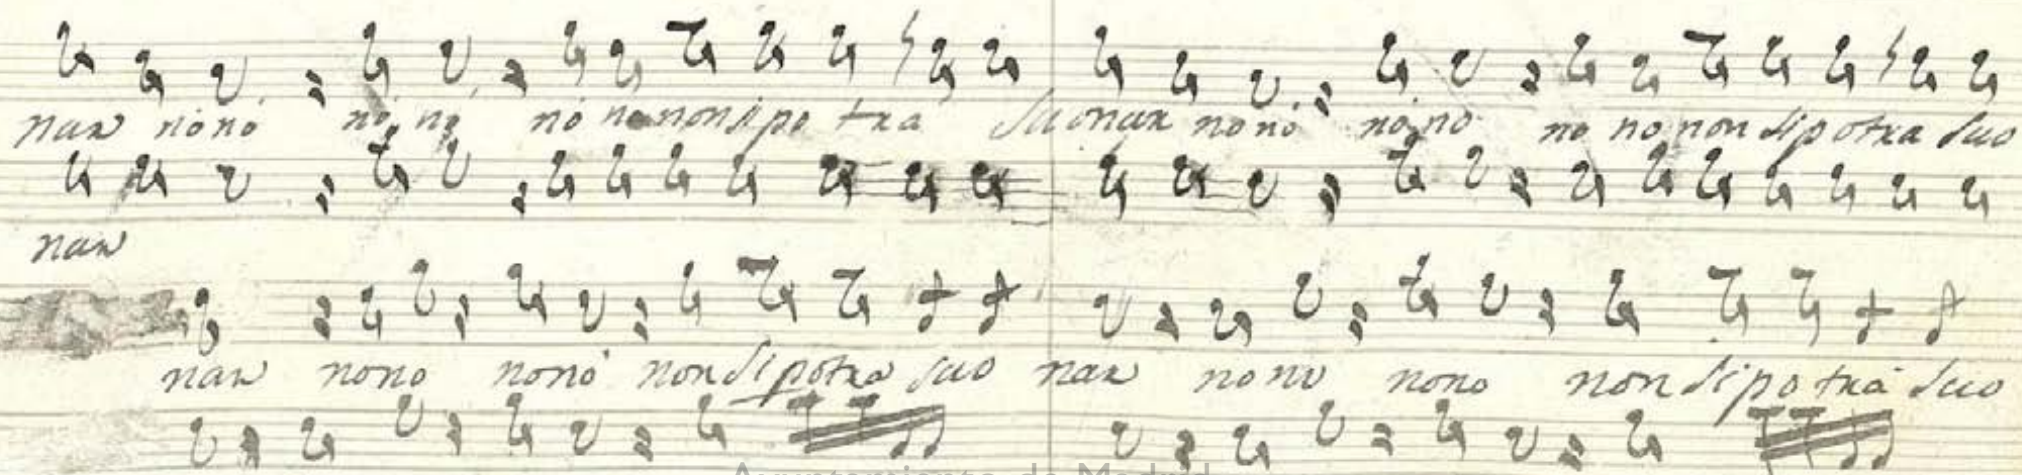 nar nònò nò, nò nò no non si po trà Suonar no nò nò, no no no non si potra Suo
nar
nar nono nonò non si potra suo nar no no nono non si po trà Suo
Ayuntamiento de Madrid